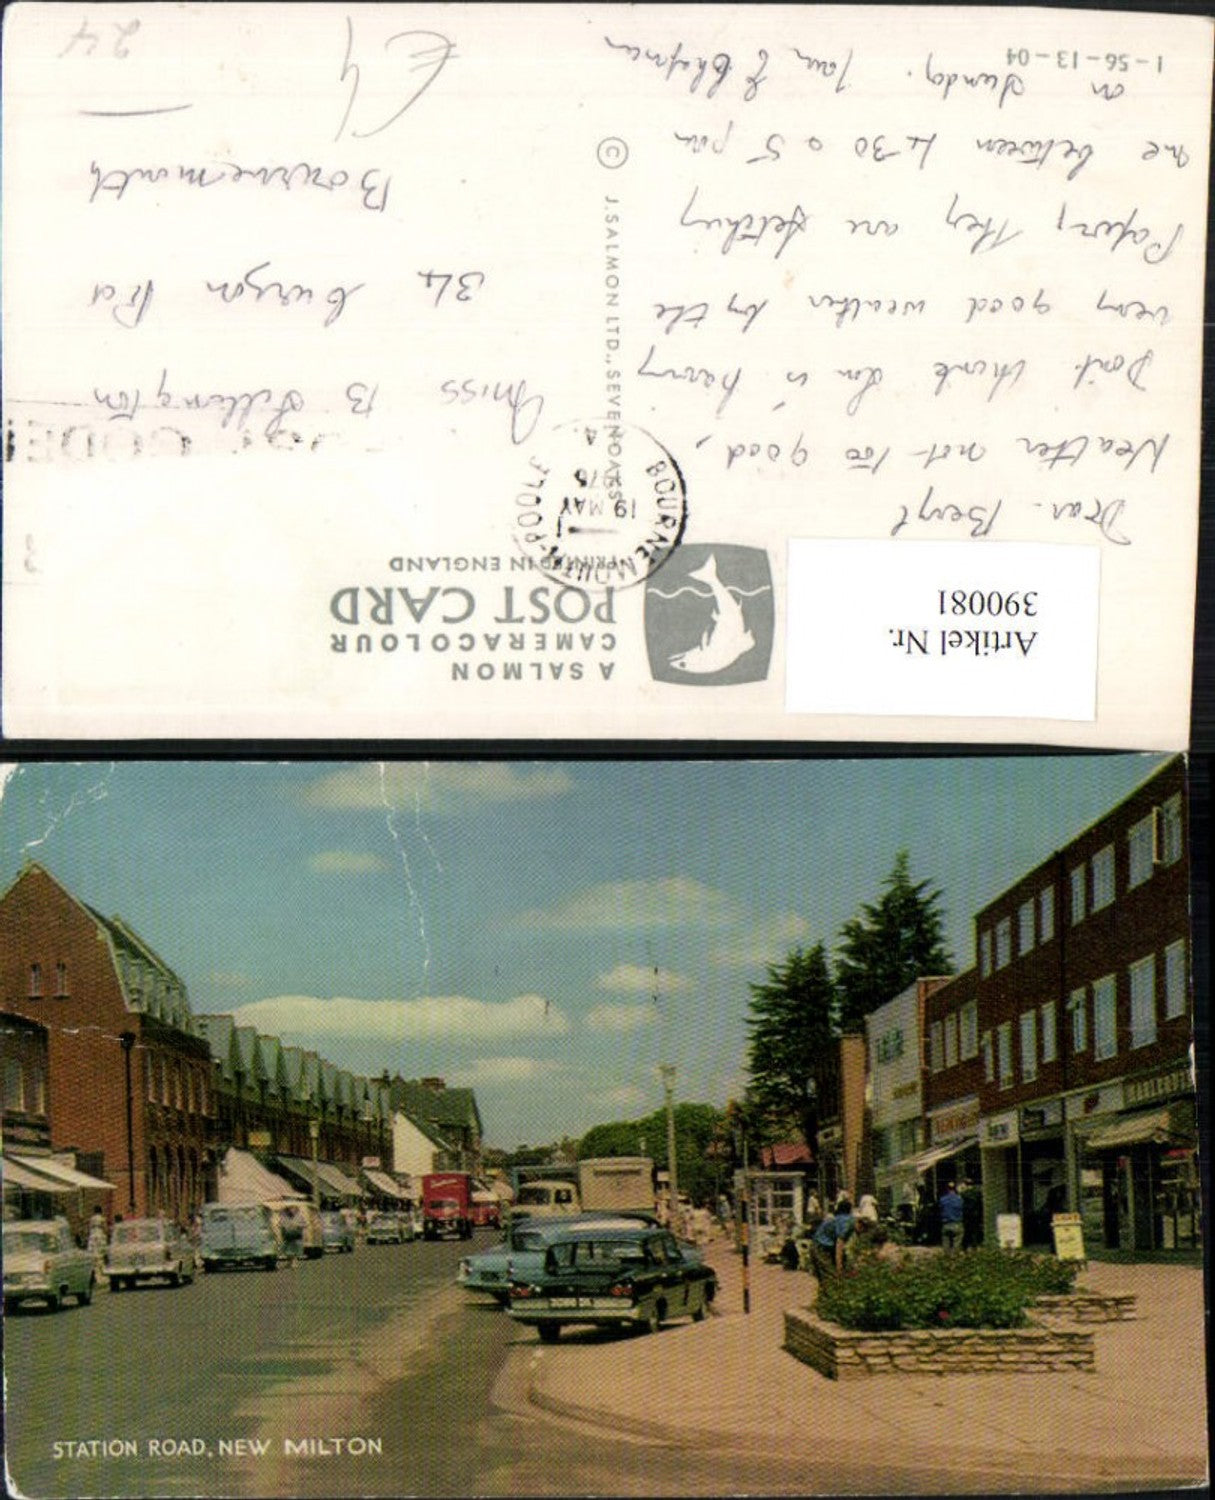 Artikel Nr.
390081
A SALMON
CAMERACOLOUR
POST CARD
PRINTED IN ENGLAND
BOURNEMOUTH-POOLE
19 MAY
1976
A
Dear Beryl
Weather not too good,
Don't think Ian is having
very good weather by the
Paper, they are fetching
me between 4.30 o 5 pm
on Sunday. Tom & Chapman
1-56-13-04
© J. SALMON LTD., SEVENOAKS
CODE
Miss B Billington
34 Curzon Rd
Bournemouth
24
STATION ROAD, NEW MILTON